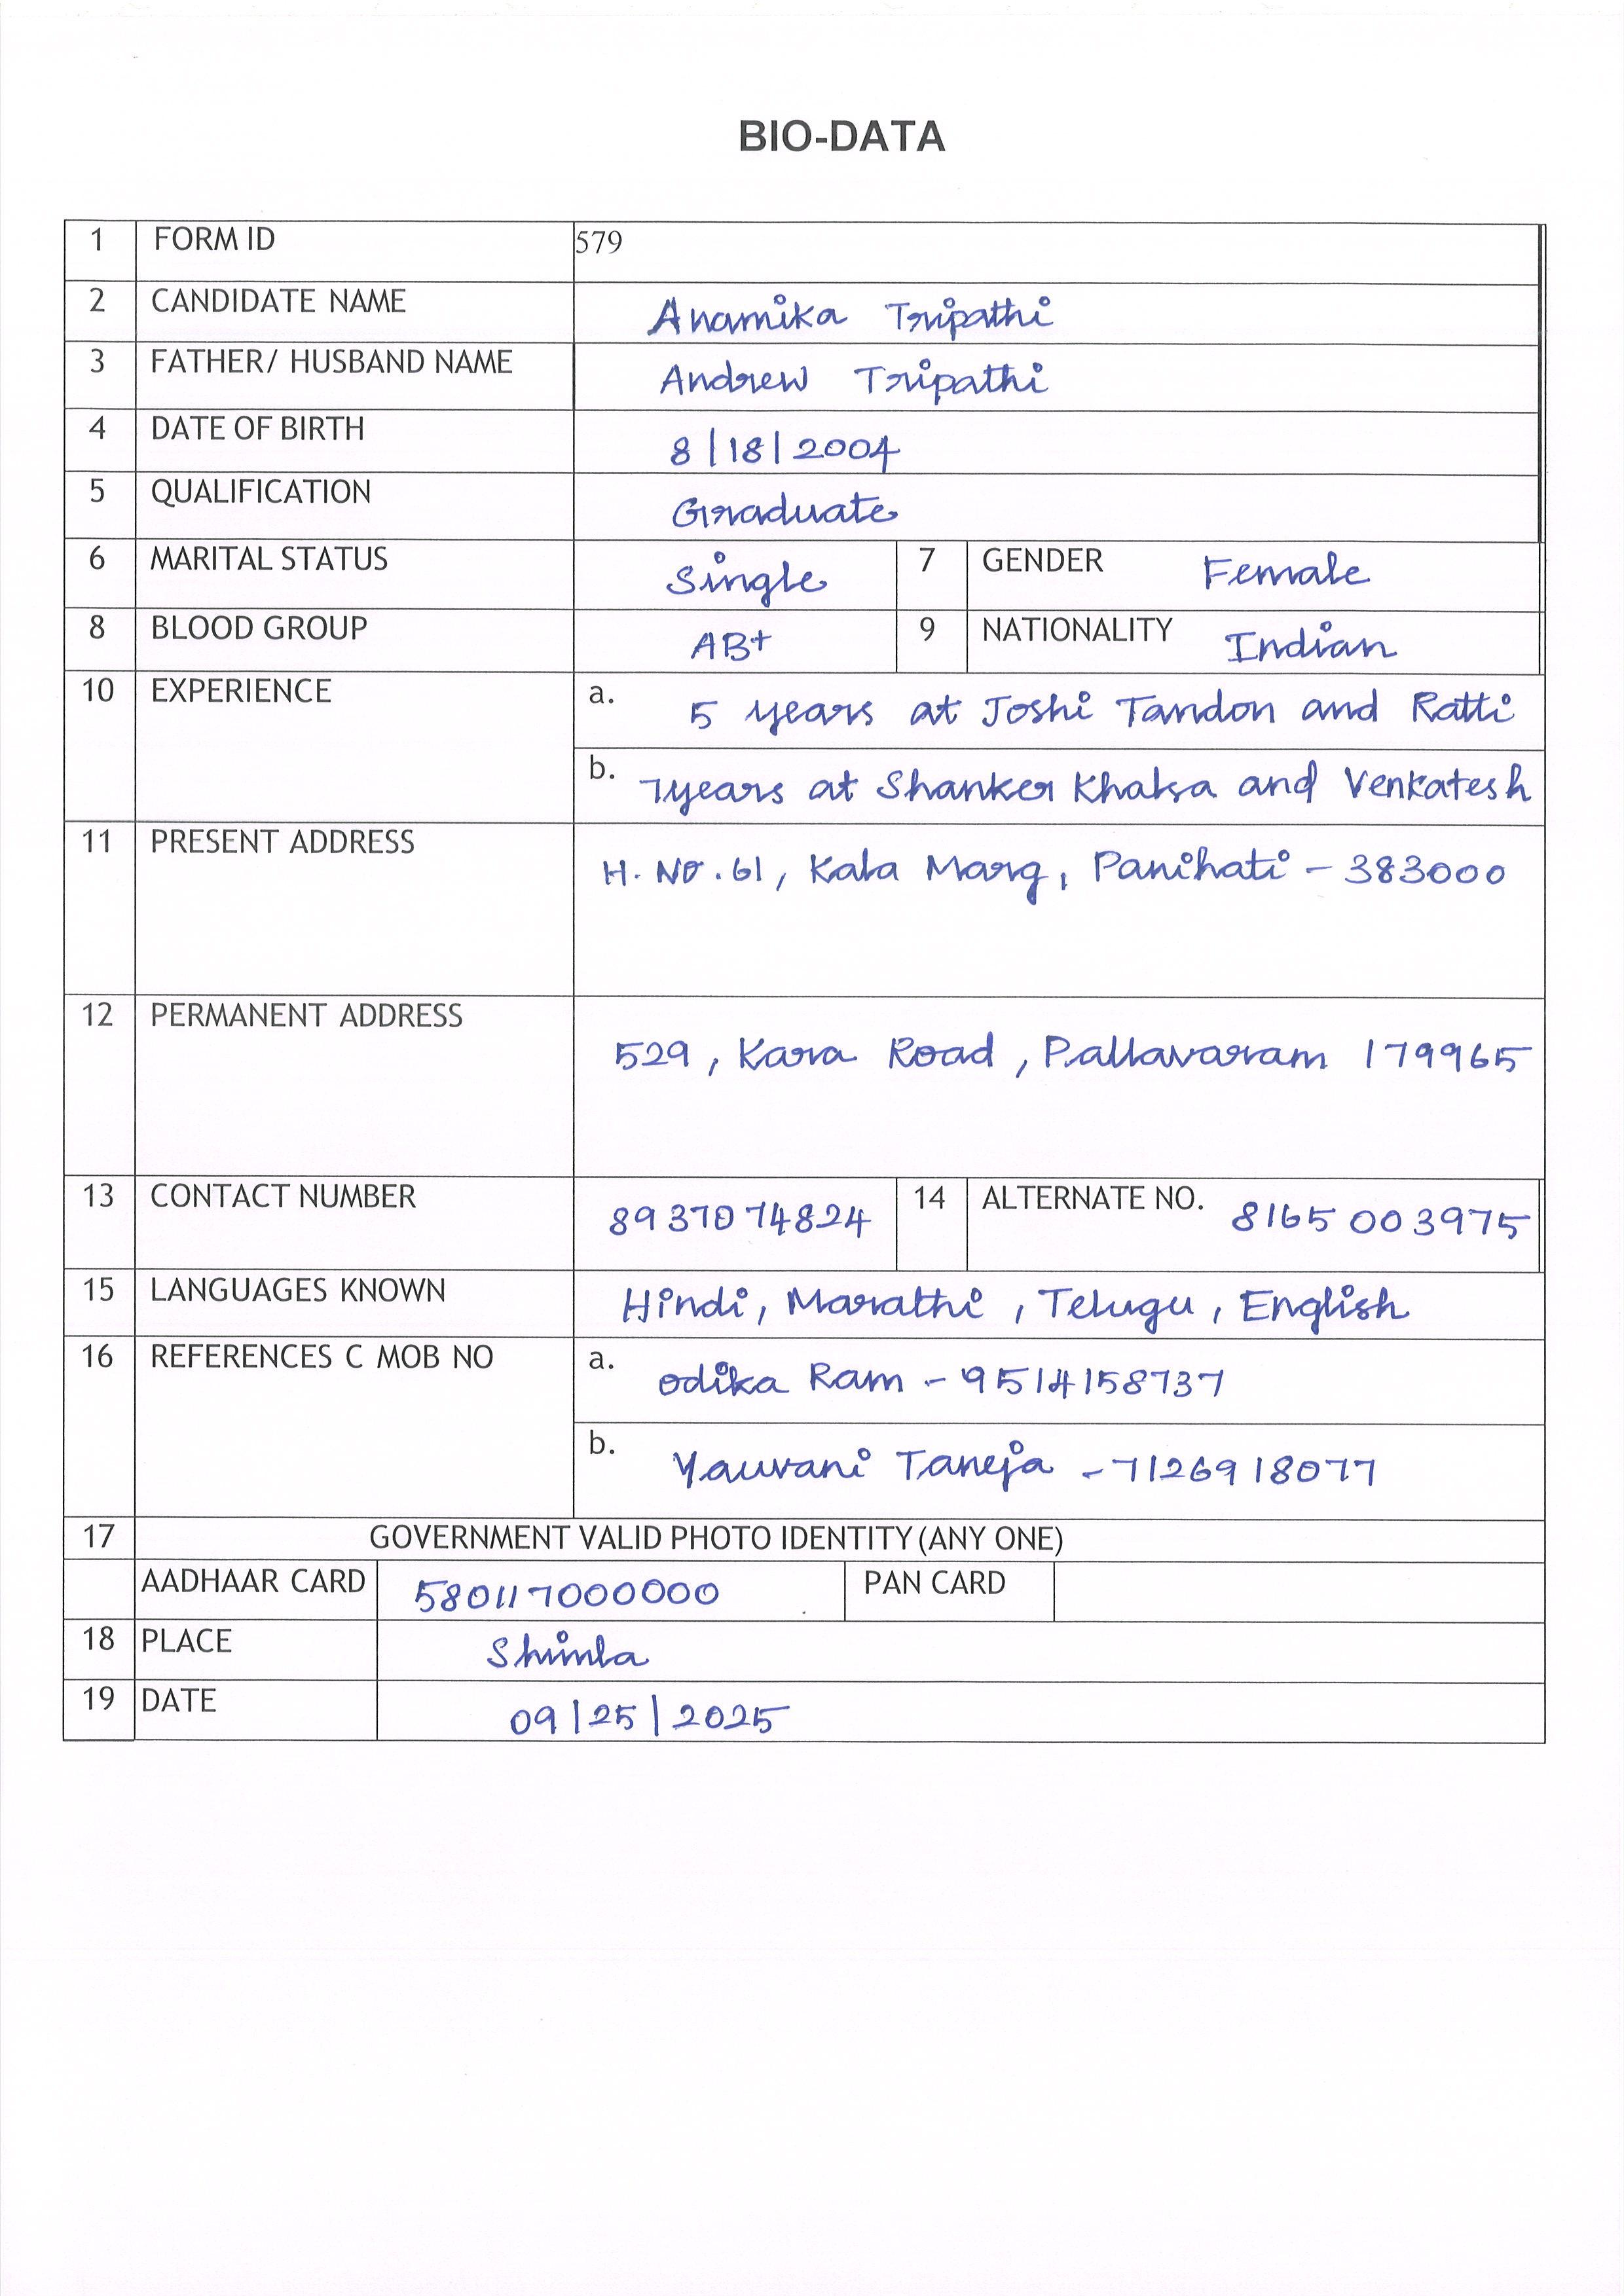 BIO-DATA
1 FORM ID 579
2 CANDIDATE NAME Anamika Tripathi
3 FATHER/ HUSBAND NAME Andrew Tripathi
4 DATE OF BIRTH 8|18|2004
5 QUALIFICATION Graduate
6 MARITAL STATUS Single 7 GENDER Female
8 BLOOD GROUP AB+ 9 NATIONALITY Indian
10 EXPERIENCE a. 5 years at Joshi Tandon and Ratti
b. 7years at Shanker Khalsa and Venkatesh
11 PRESENT ADDRESS H. NO. 61, Kala Marg, Panihati - 383000
12 PERMANENT ADDRESS 529, Kara Road, Pallavaram 179965
13 CONTACT NUMBER 8937074824 14 ALTERNATE NO. 8165003975
15 LANGUAGES KNOWN Hindi, Marathi, Telugu, English
16 REFERENCES C MOB NO a. Odika Ram - 9514158737
b. Yauvani Taneja - 7126918077
17 GOVERNMENT VALID PHOTO IDENTITY (ANY ONE)
AADHAAR CARD 580117000000 PAN CARD
18 PLACE Shimla
19 DATE 09|25|2025